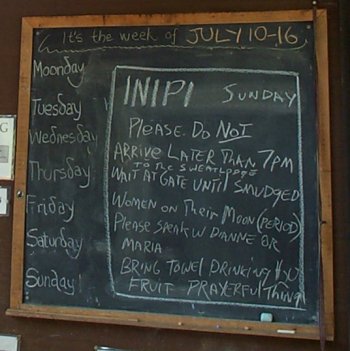 It's the week of JULY 10-16
Moonday
Tuesday
Wednesday
Thursday
Friday
Saturday
Sunday!
INIPI SUNDAY
PLEASE DO NOT
ARRIVE LATER THAN 7PM
TO THE SWEATLODGE
WAIT AT GATE UNTIL SMUDGED
WOMEN ON THEIR MOON (PERIOD)
PLEASE SPEAK W DIANNE OR
MARIA
BRING TOWEL DRINKING
FRUIT PRAYERFUL THING
G